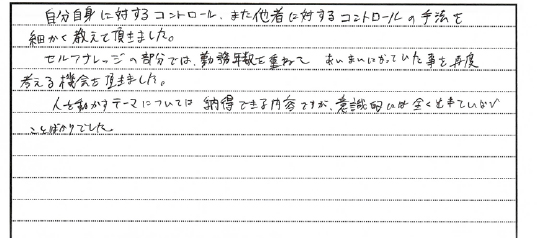 自分自身に対するコントロール、また他者に対するコントロールの手法を
細かく教えて頂きました。
セルフナレッジの部分では、勤務年数を重ねて あいまいになっていた事を再度
考える機会を頂きました。
人を動かすテーマについては 納得できる内容ですが、意識的には全く出来ていない
ことばかりでした。